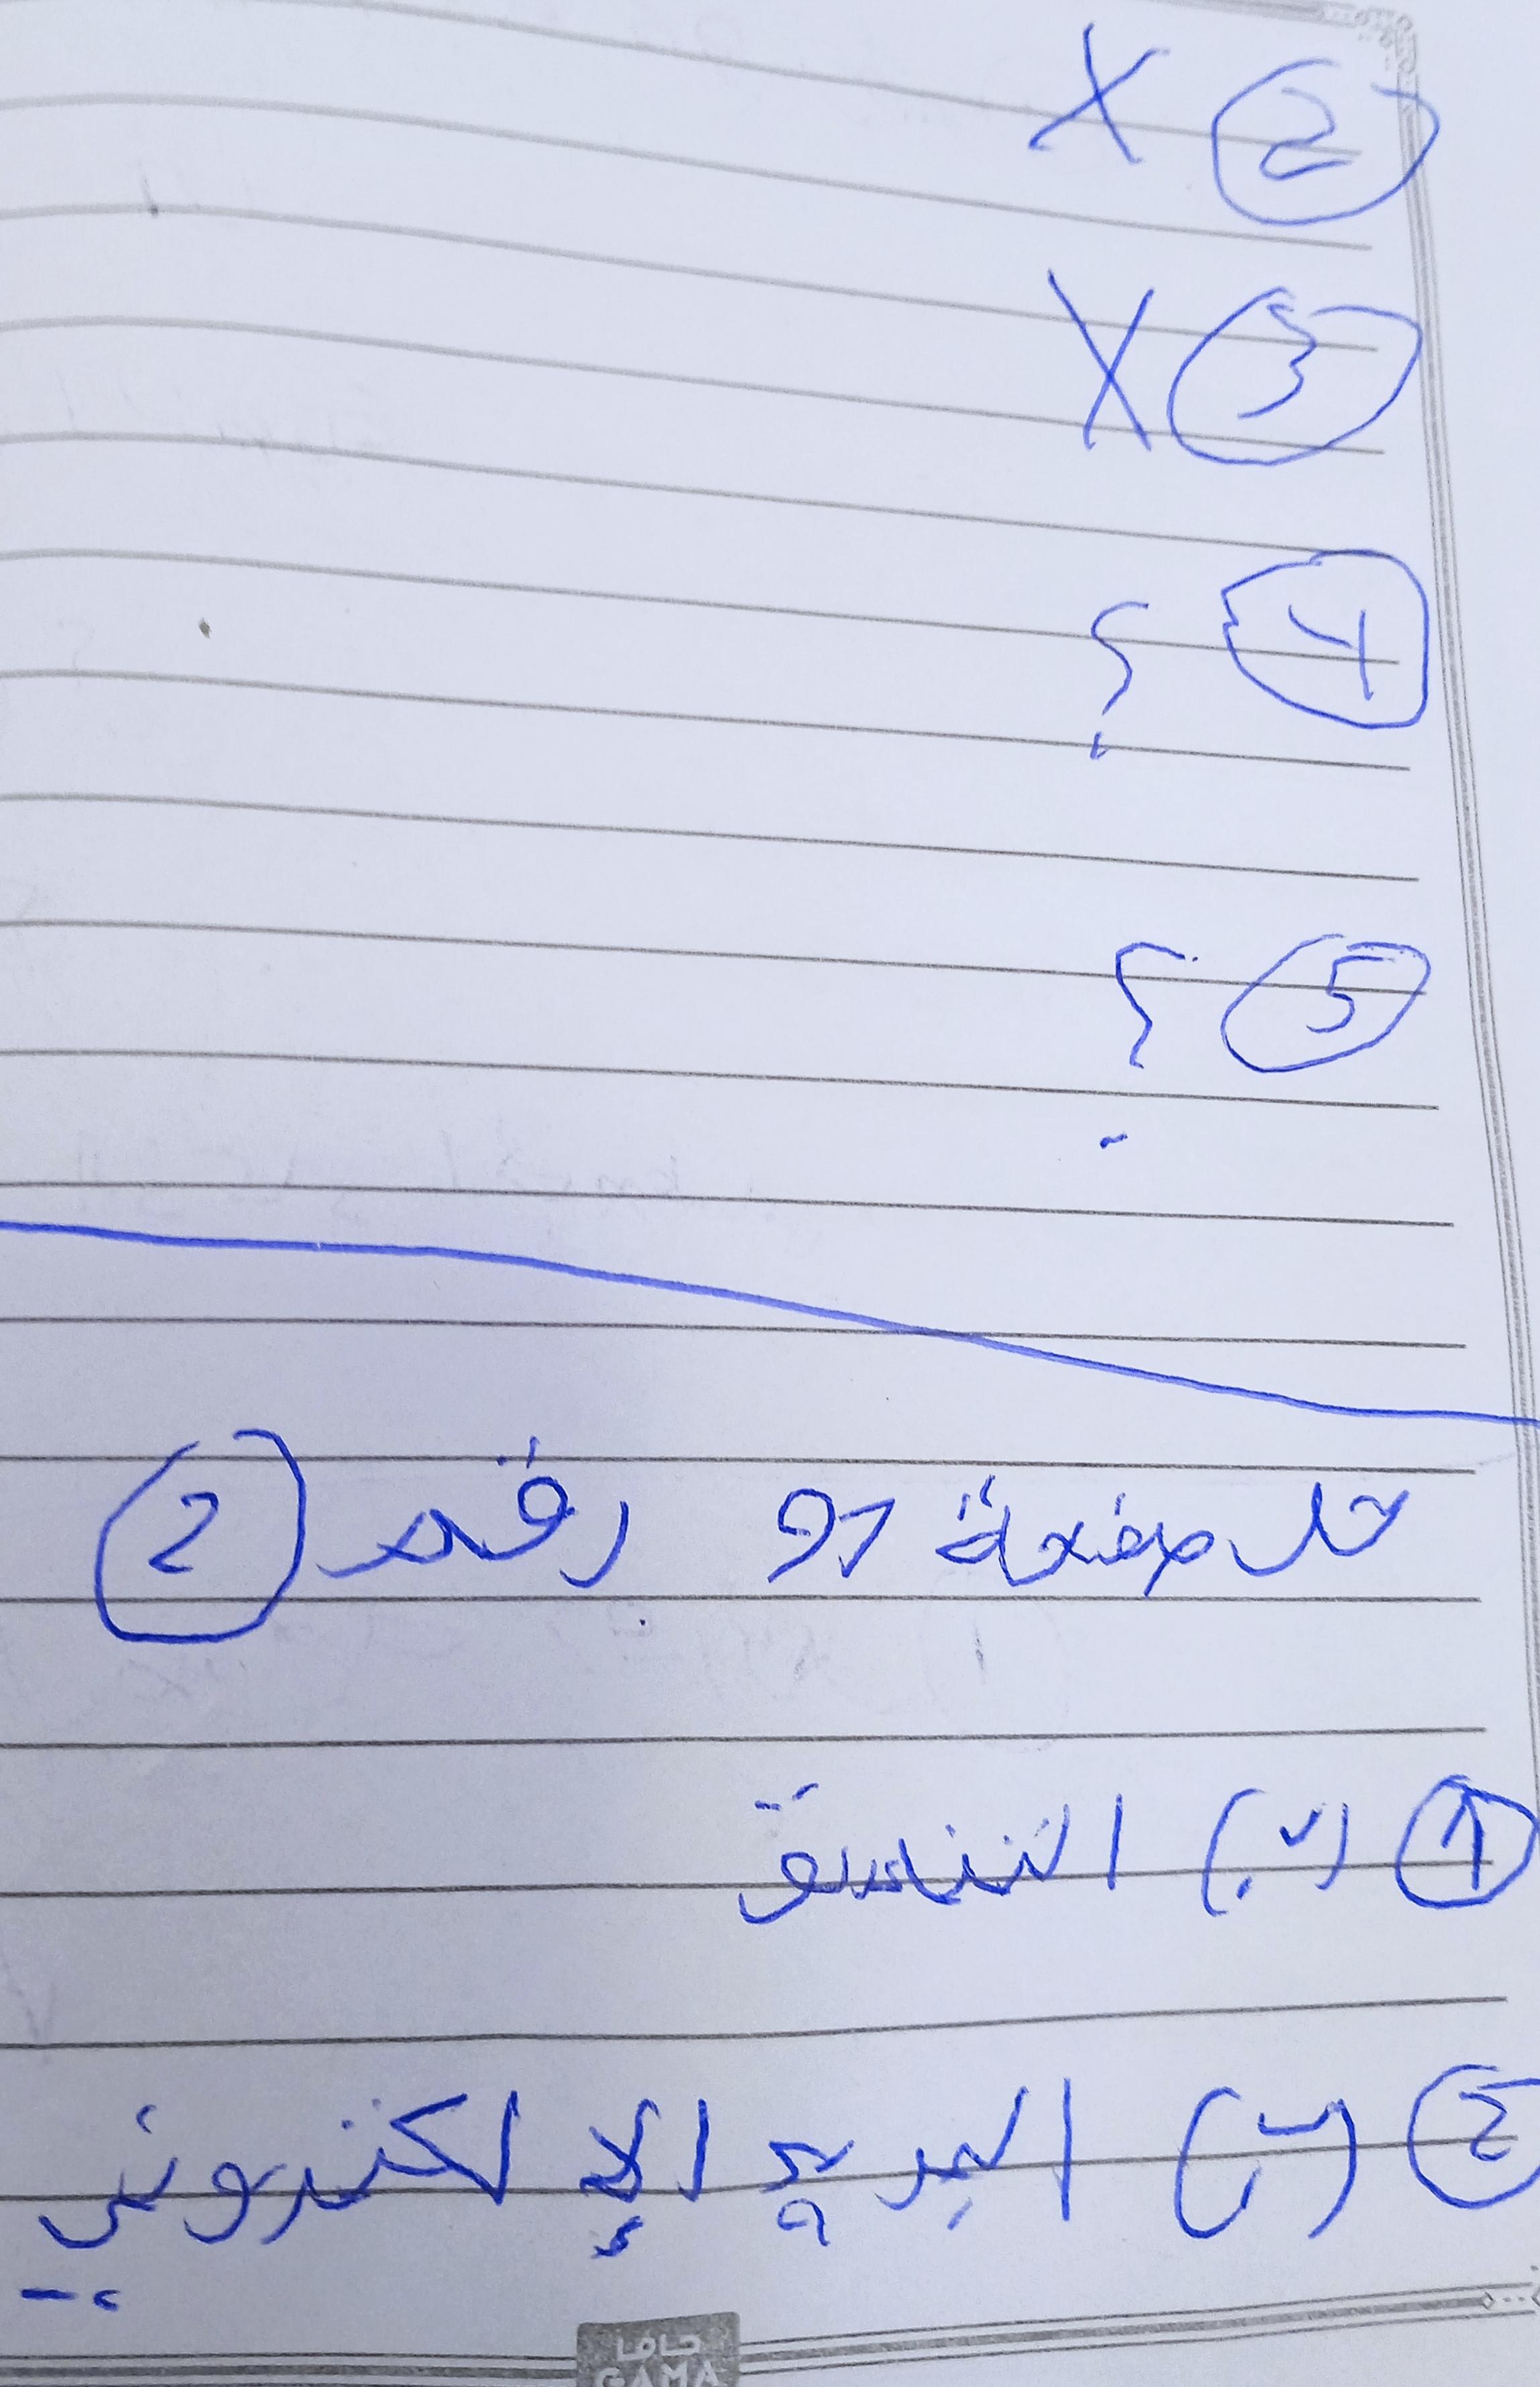 ② X
③ X
④ ؟
⑤ ؟
حل صفحة 29 رقم ②
① (ب) التناسق
② (ب) البريد الإلكتروني
جاما
GAMA